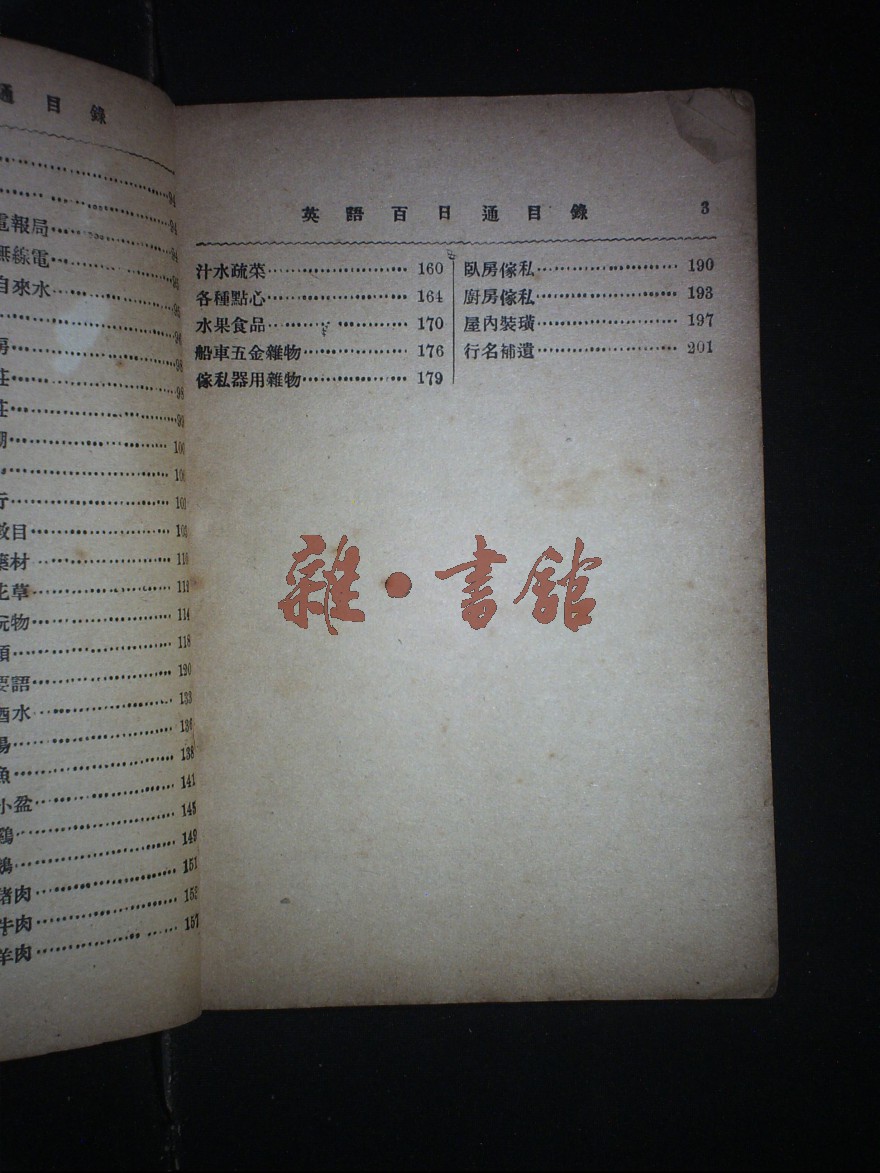 通目錄
94
94
電報局 94
無線電 95
自來水 95
96
房 98
莊 98
莊 99
100
100
行 101
數目 103
藥材 110
花草 112
玩物 114
118
要語 120
酒水 133
湯 136
魚 138
小盆 141
鷄 145
鵝 149
豬肉 151
牛肉 153
羊肉 157
英語百日通目錄 3
汁水疏菜 160
各種點心 164
水果食品 170
船車五金雜物 176
傢私器用雜物 179
臥房傢私 190
廚房傢私 193
屋內裝璜 197
行名補遺 201
雜·書館